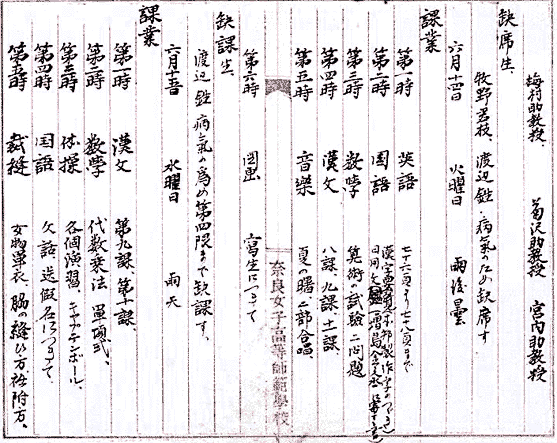 梅村助教授 菊沢助教授 宮内助教授
缺席生、
牧野君枝、渡辺 病氣のため缺席す
六月十四日 火曜日 雨後曇
課業
第一時 英語 七十六頁より七八頁まで
第二時 国語
第三時 数学 算術の試験 二問題
第四時 漢文 八課、九課、十一課、
第五時 音樂 夏の曙 二部合唱、
第六時 図画 寫生につきて
奈良女子高等師範學校
缺課生、
渡辺 病氣の爲め第四限まで缺課す、
六月十五日 水曜日 雨天
課業
第一時 漢文 第九課、第十課、
第二時 数學 代数乗法 單項式、
第三時 体操 各個演習、キャプテンボール、
第四時 国語 欠語 送假名につきて
第五時 裁縫 女物單衣、脇の縫ひ方 衽附方、